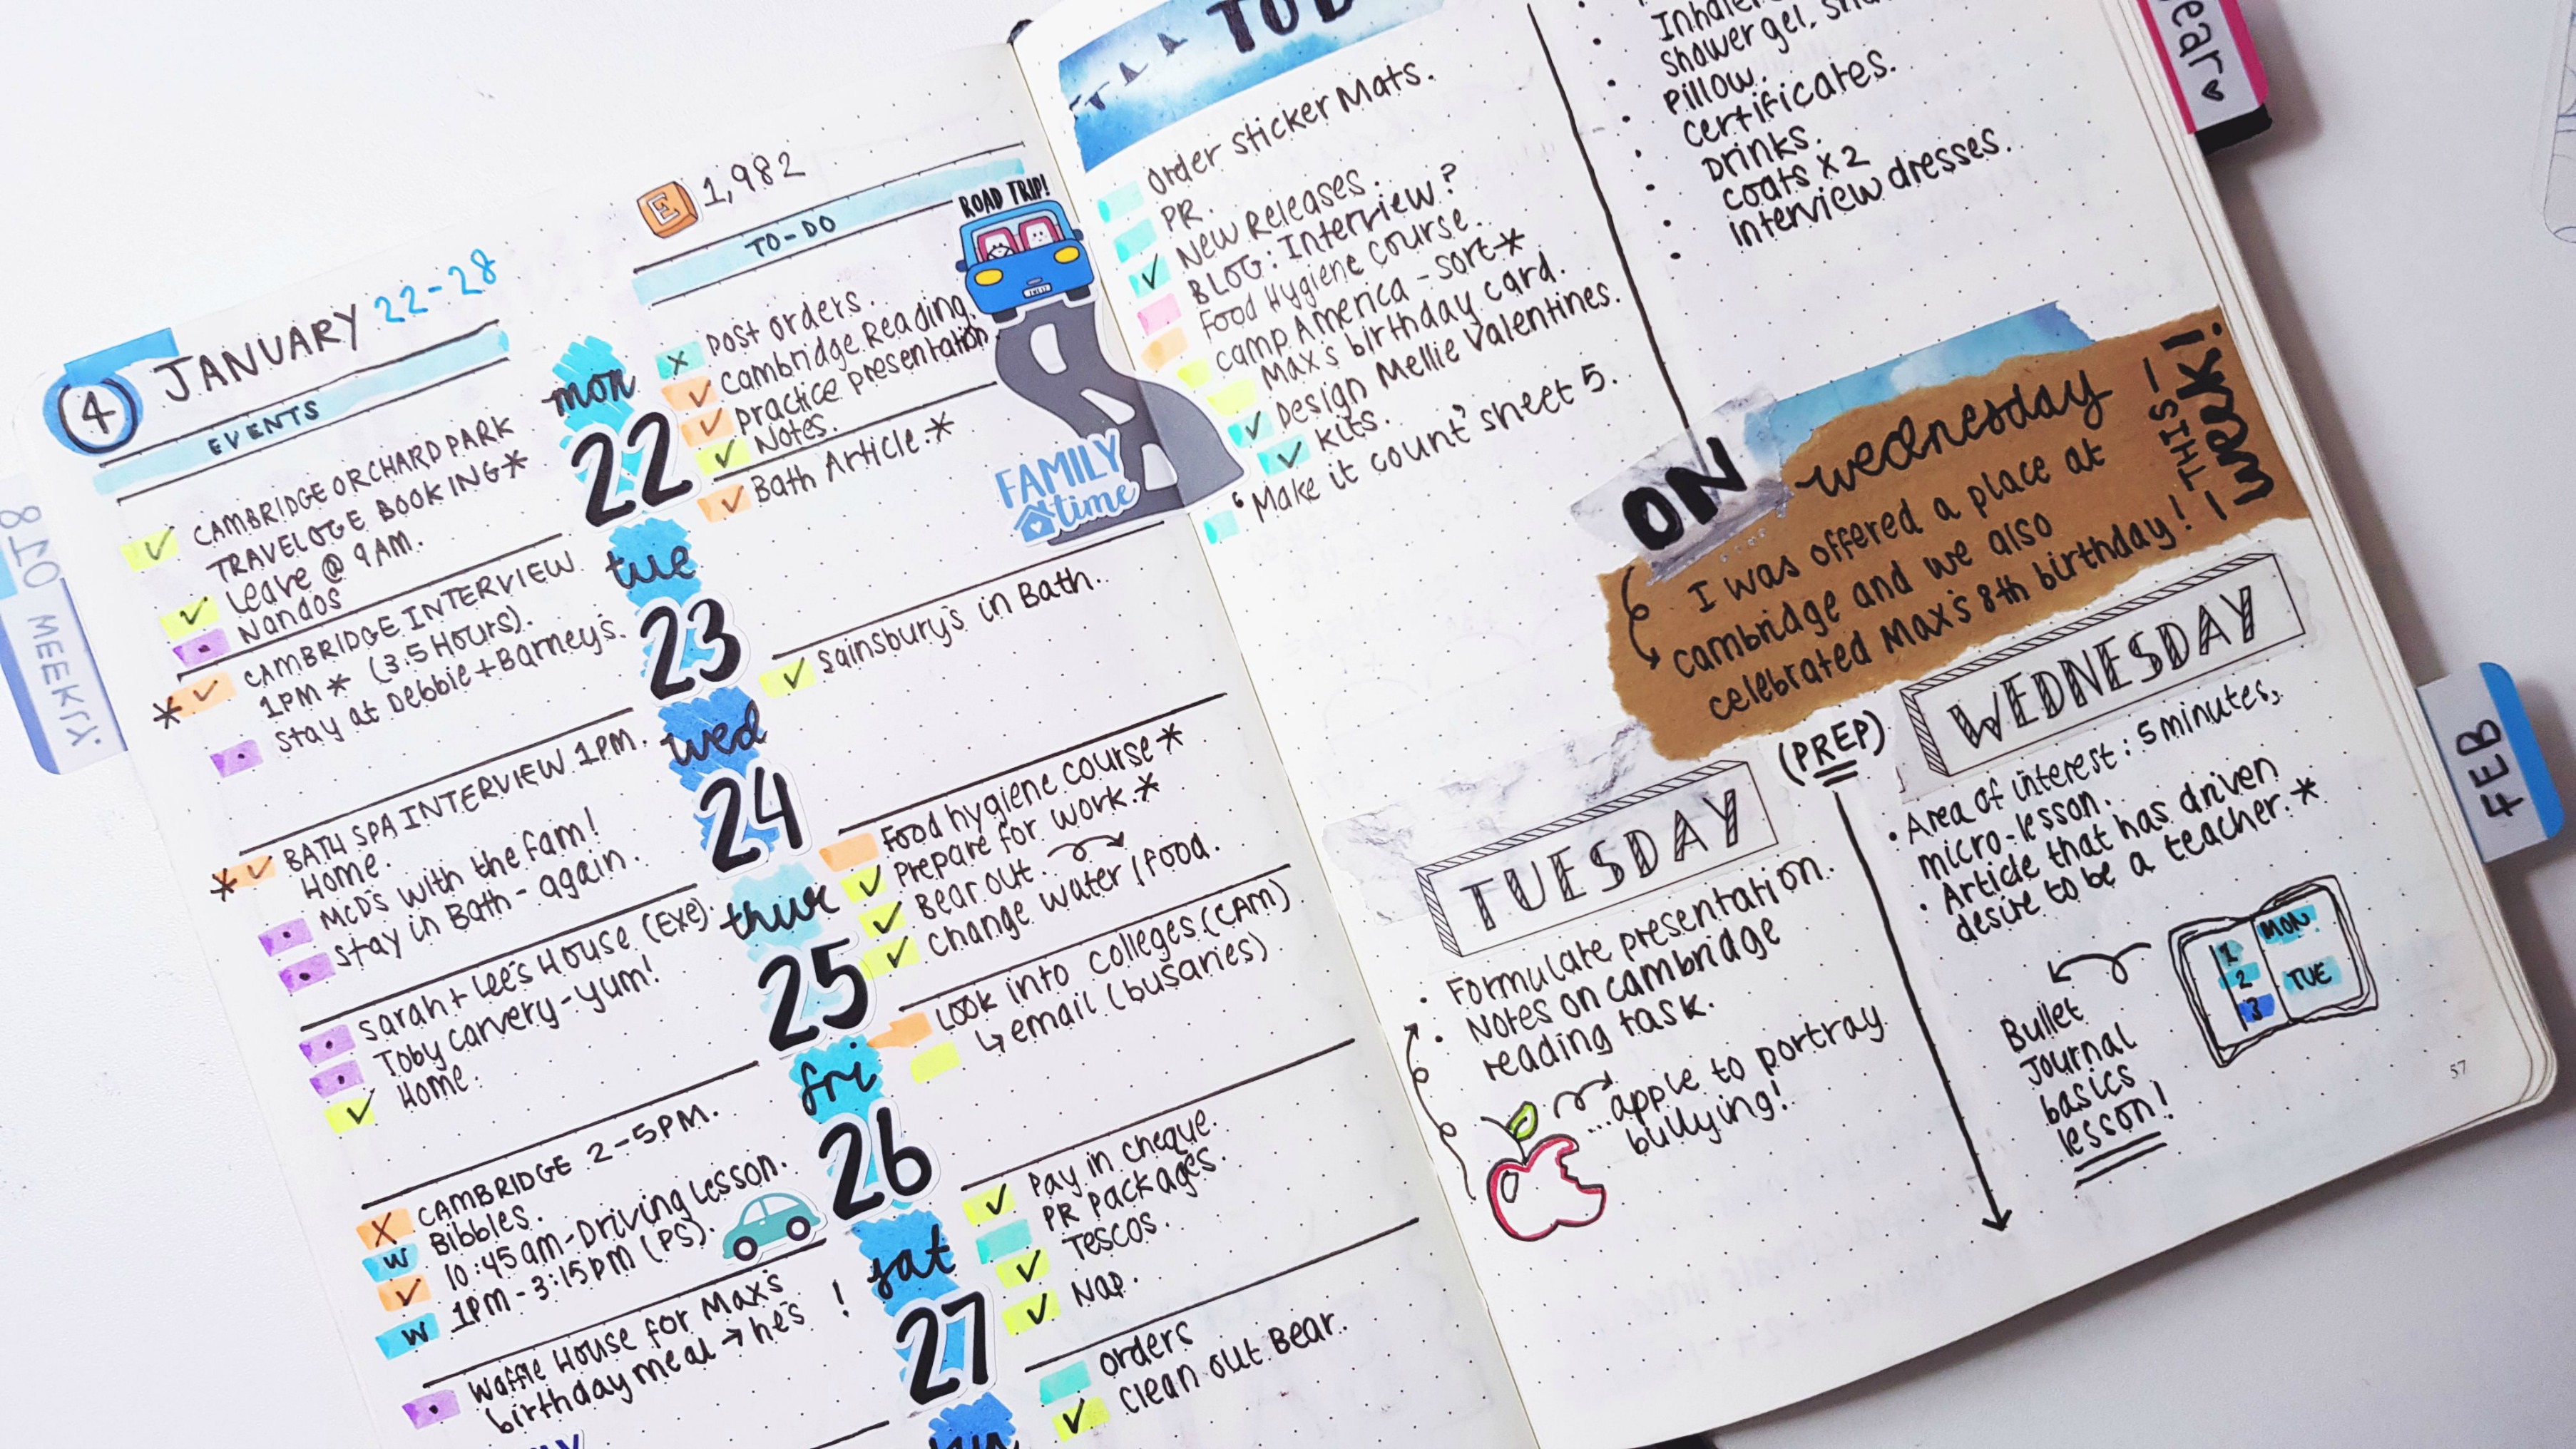 4
JANUARY 22-28
EVENTS
CAMBRIDGE ORCHARD PARK
TRAVELOGE BOOKING*
Leave @ 9AM.
Nandos
CAMBRIDGE INTERVIEW
1PM * (3.5 Hours).
Stay at Debbie + Barney's.
BATH SPA INTERVIEW 1PM.
Home.
McD's with the fam!
Stay in Bath - again.
Sarah + Lee's House (Exe).
Toby Carvery - yum!
Home.
CAMBRIDGE 2-5PM.
Bibbles.
10:45am - Driving Lesson.
1PM - 3:15pm (PS).
Waffle House for Max's
birthday meal → he's !
mon
22
tue
23
wed
24
thur
25
fri
26
sat
27
E 1,982
TO-DO
Post orders.
Cambridge Reading.
Practice presentation.
Notes.
Bath Article.*
Sainsbury's in Bath.
Food hygiene course *
Prepare for work.*
Bear out.
Change water / food.
Look into colleges. (CAM)
↳ email (busaries)
Pay in cheque.
PR Packages.
Tescos.
Nap.
Orders
Clean out Bear.
ROAD TRIP!
FAMILY
time
Order Sticker Mats.
PR.
New Releases.
BLOG: Interview?
Food Hygiene Course.
Camp America - sort *
Max's birthday card.
Design Mellie Valentines.
Kits.
"Make it count" sheet 5.
Shower gel,
Pillow.
Certificates.
Drinks.
Coats x 2
Interview dresses.
ON wednesday
I was offered a place at
Cambridge and we also
celebrated Max's 8th birthday!
THIS
WRK!
(PREP)
TUESDAY
• Formulate presentation.
• Notes on Cambridge
reading task.
...apple to portray
bullying!
WEDNESDAY
• Area of interest: 5 minutes,
micro-lesson.
• Article that has driven
desire to be a teacher.*
1
2
3
MON
TUE
Bullet
Journal
basics
lesson!
57
FEB